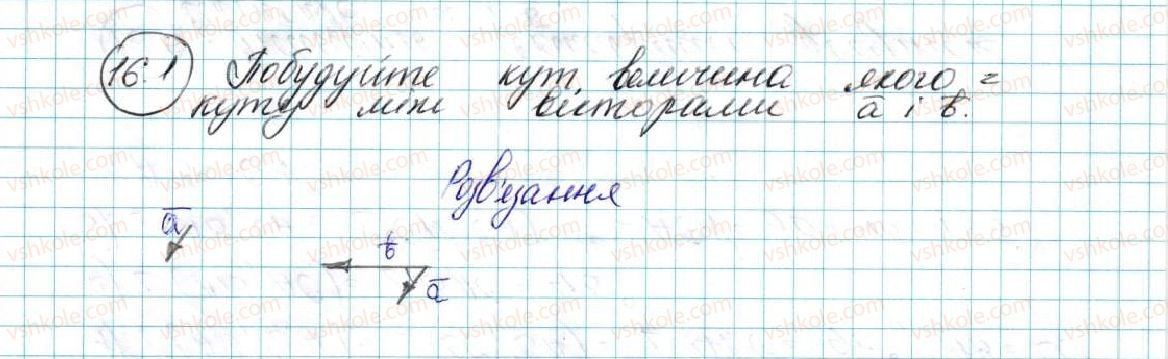 16.1 Побудуйте кут, величина якого =
куту між векторами a̅ і b̅.
Розв'язання
a̅
b̅
a̅